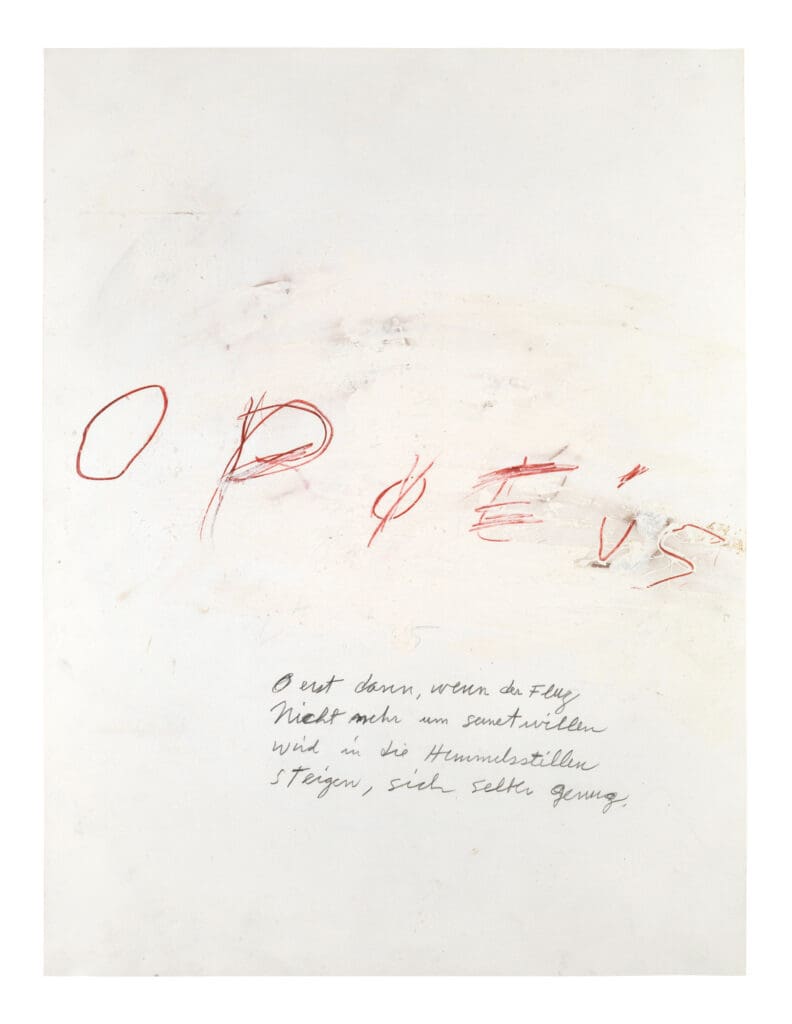 ΟΡΦΕύS
O erst dann, wenn der Flug
Nicht mehr um seinetwillen
wird in die Himmelsstillen
steigen, sich selber genug,